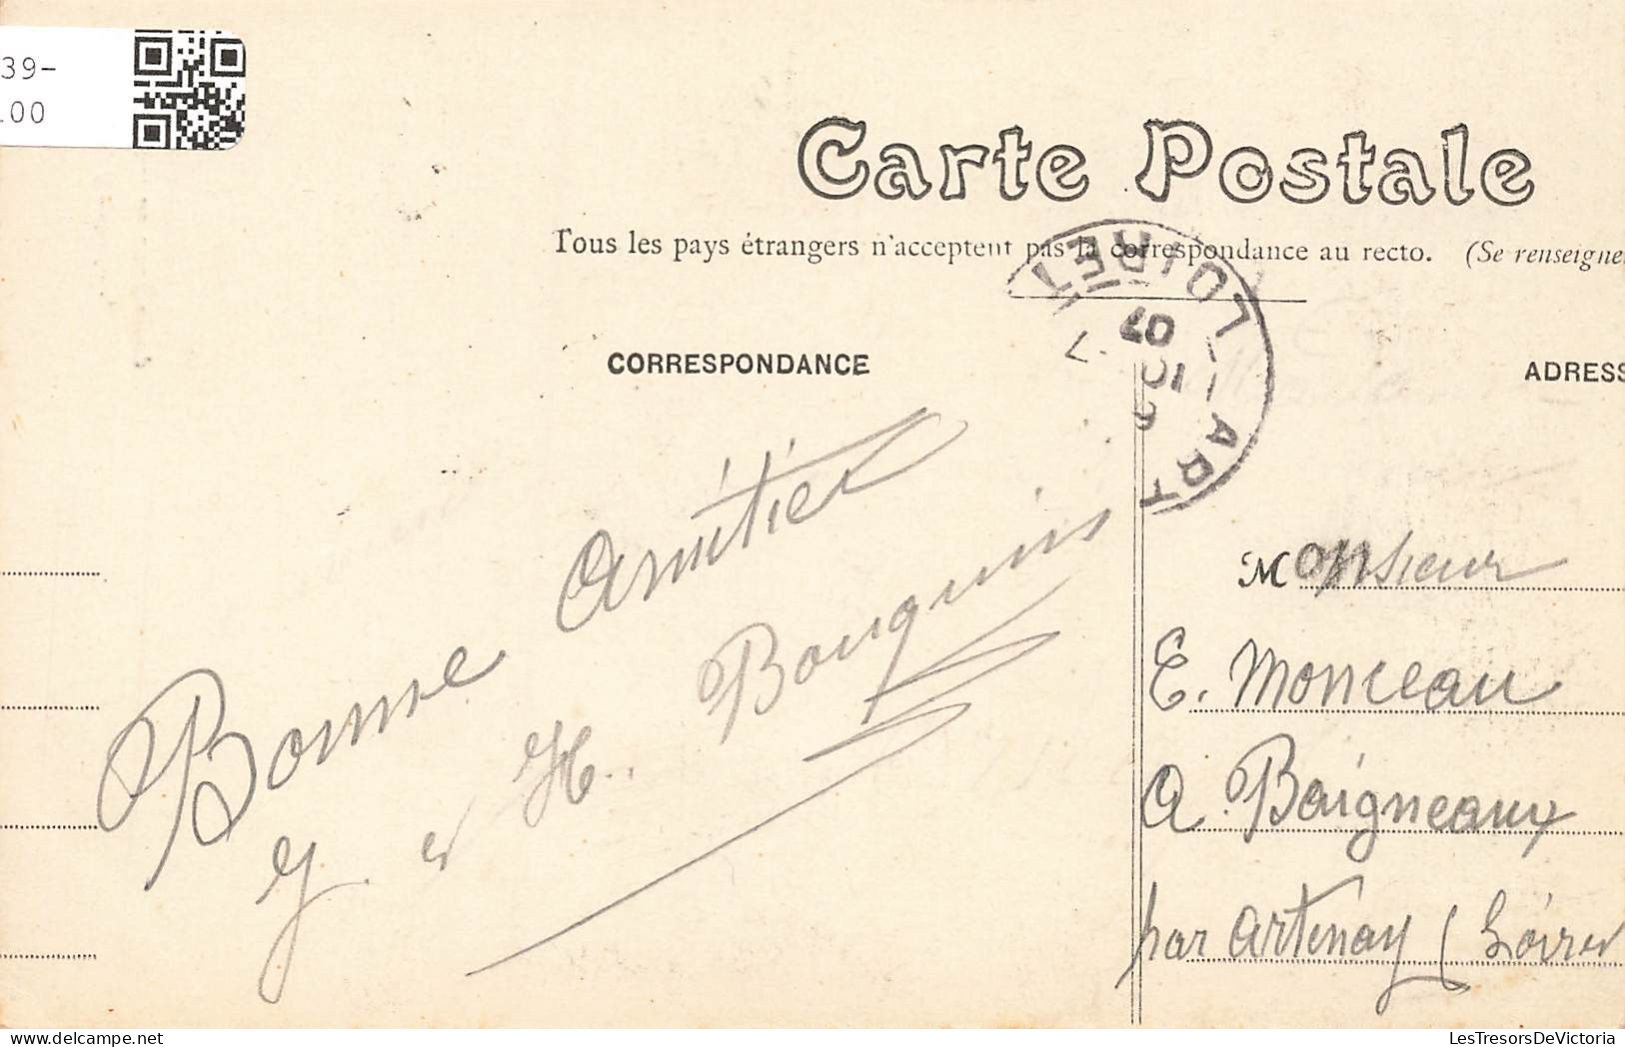 39-
.00
Carte Postale
Tous les pays étrangers n'acceptent pas la correspondance au recto. (Se renseigne
LOIRET
ART
7
10
07
CORRESPONDANCE
ADRESS
Bonne amitiée
J. et H. Bouquins
Monsieur
E. Monceau
a Baigneaux
par Artenay (Loiret
LesTresorsDeVictoria